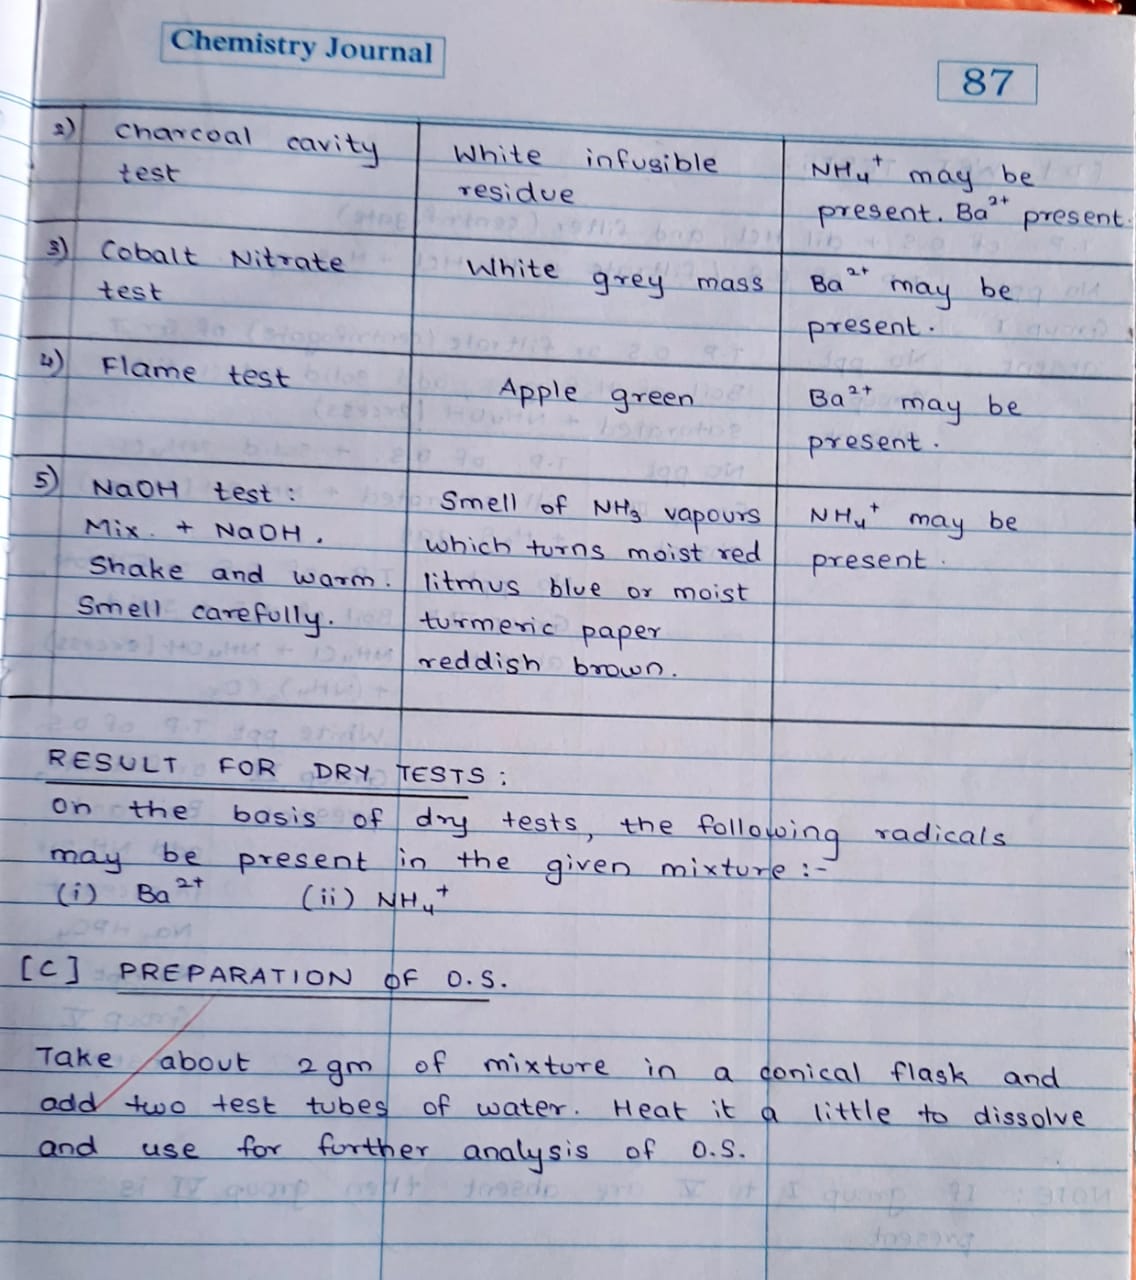 Chemistry Journal
87
2) Charcoal cavity
test
White infusible
residue
NH₄⁺ may be
present. Ba²⁺ present.
3) Cobalt Nitrate
test
White grey mass
Ba²⁺ may be
present.
4) Flame test
Apple green
Ba²⁺ may be
present.
5) NaOH test :
Mix. + NaOH.
Shake and warm.
Smell carefully.
Smell of NH₃ vapours
which turns moist red
litmus blue or moist
turmeric paper
reddish brown.
NH₄⁺ may be
present.
RESULT FOR DRY TESTS :
On the basis of dry tests, the following radicals
may be present in the given mixture :-
(i) Ba²⁺ (ii) NH₄⁺
[C] PREPARATION OF O.S.
Take about 2 gm of mixture in a conical flask and
add two test tubes of water. Heat it a little to dissolve
and use for further analysis of O.S.